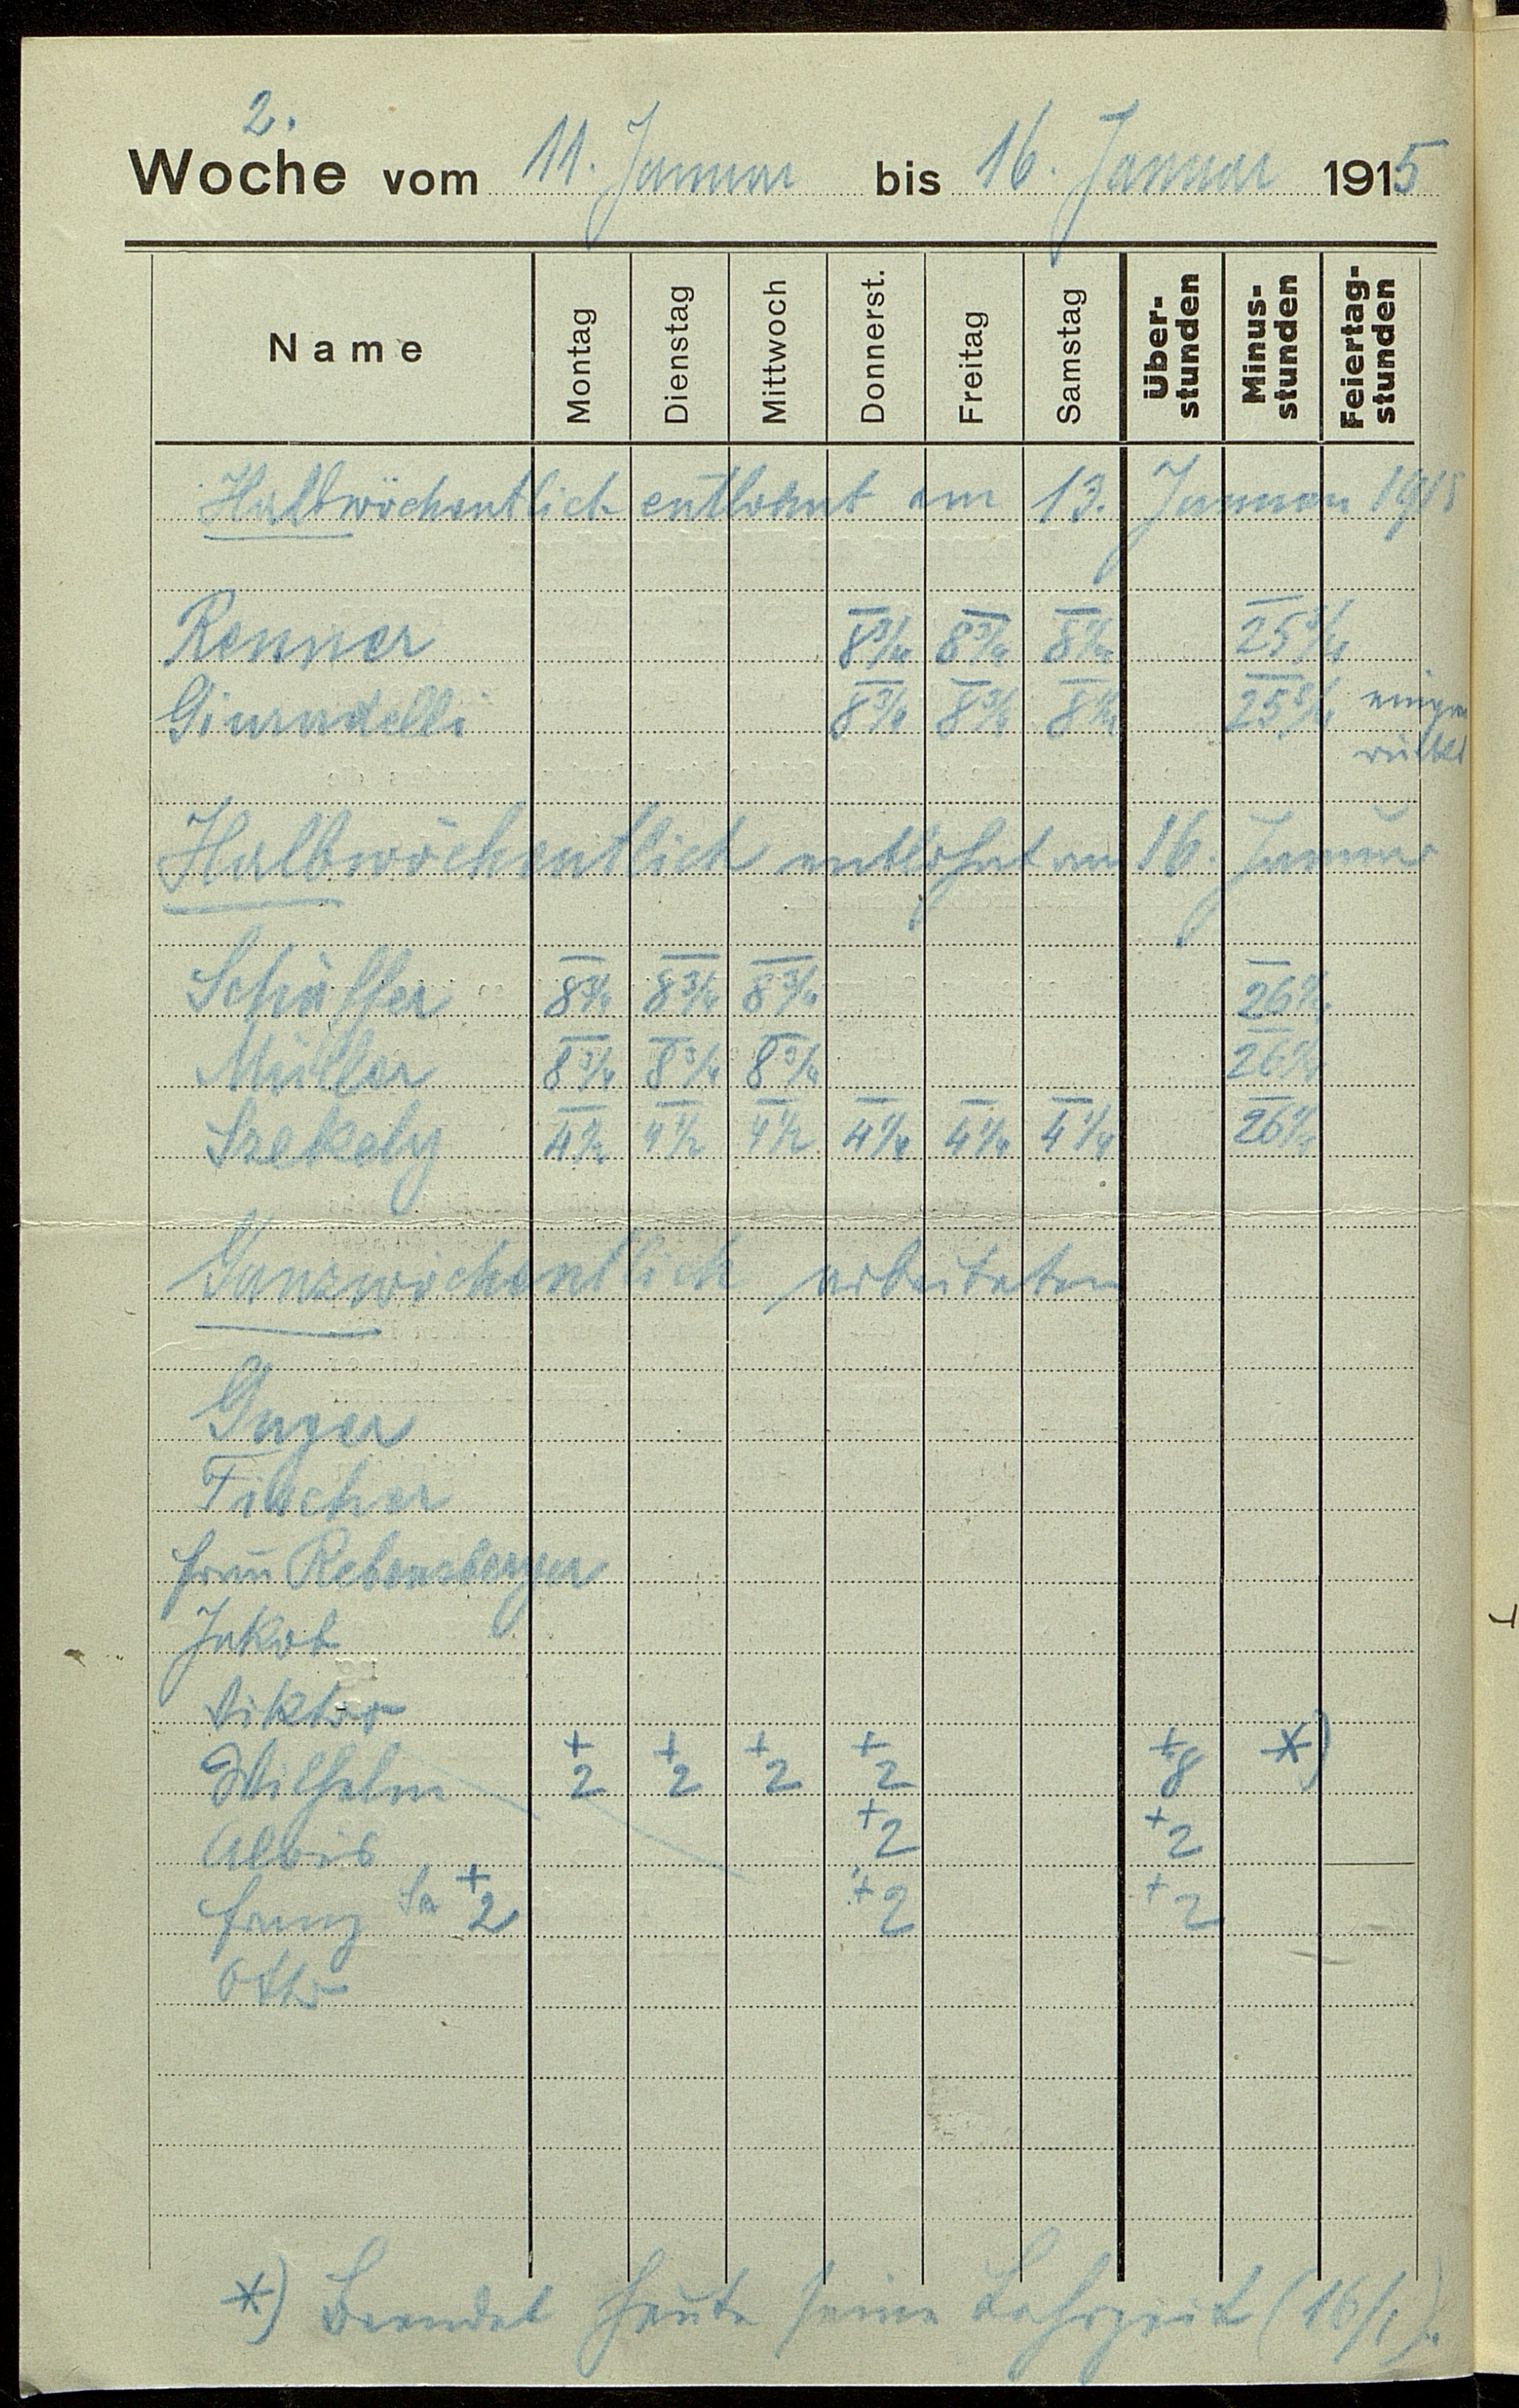 2.
Woche vom 11. Januar bis 16. Januar 1915
Name Montag Dienstag Mittwoch Donnerst. Freitag Samstag Über-stunden Minus-stunden Feiertag-stunden
Halbwöchentlich entlohnt am 13. Januar 1915
Renner 8 3/4 8 3/4 8 1/4 25 3/4
8 3/4 8 3/4 8 1/4 25 3/4
Halbwöchentlich entlohnt am 16. Januar
Schäffer 8 3/4 8 3/4 8 3/4 26 1/4
Müller 8 3/4 8 3/4 8 3/4 26 1/4
Szekely 4 1/2 4 1/2 4 1/2 4 1/4 4 1/4 4 1/4 26 1/4
Ganzwöchentlich arbeiteten
Fischer
Frau Rebensberger
Jakob
Viktor
Wilhelm +2 +2 +2 +2 +8 *)
Alois +2 +2
Franz Sa +2 +2 +2
Otto
*) Beendet heute seine Lehrzeit (16/1).